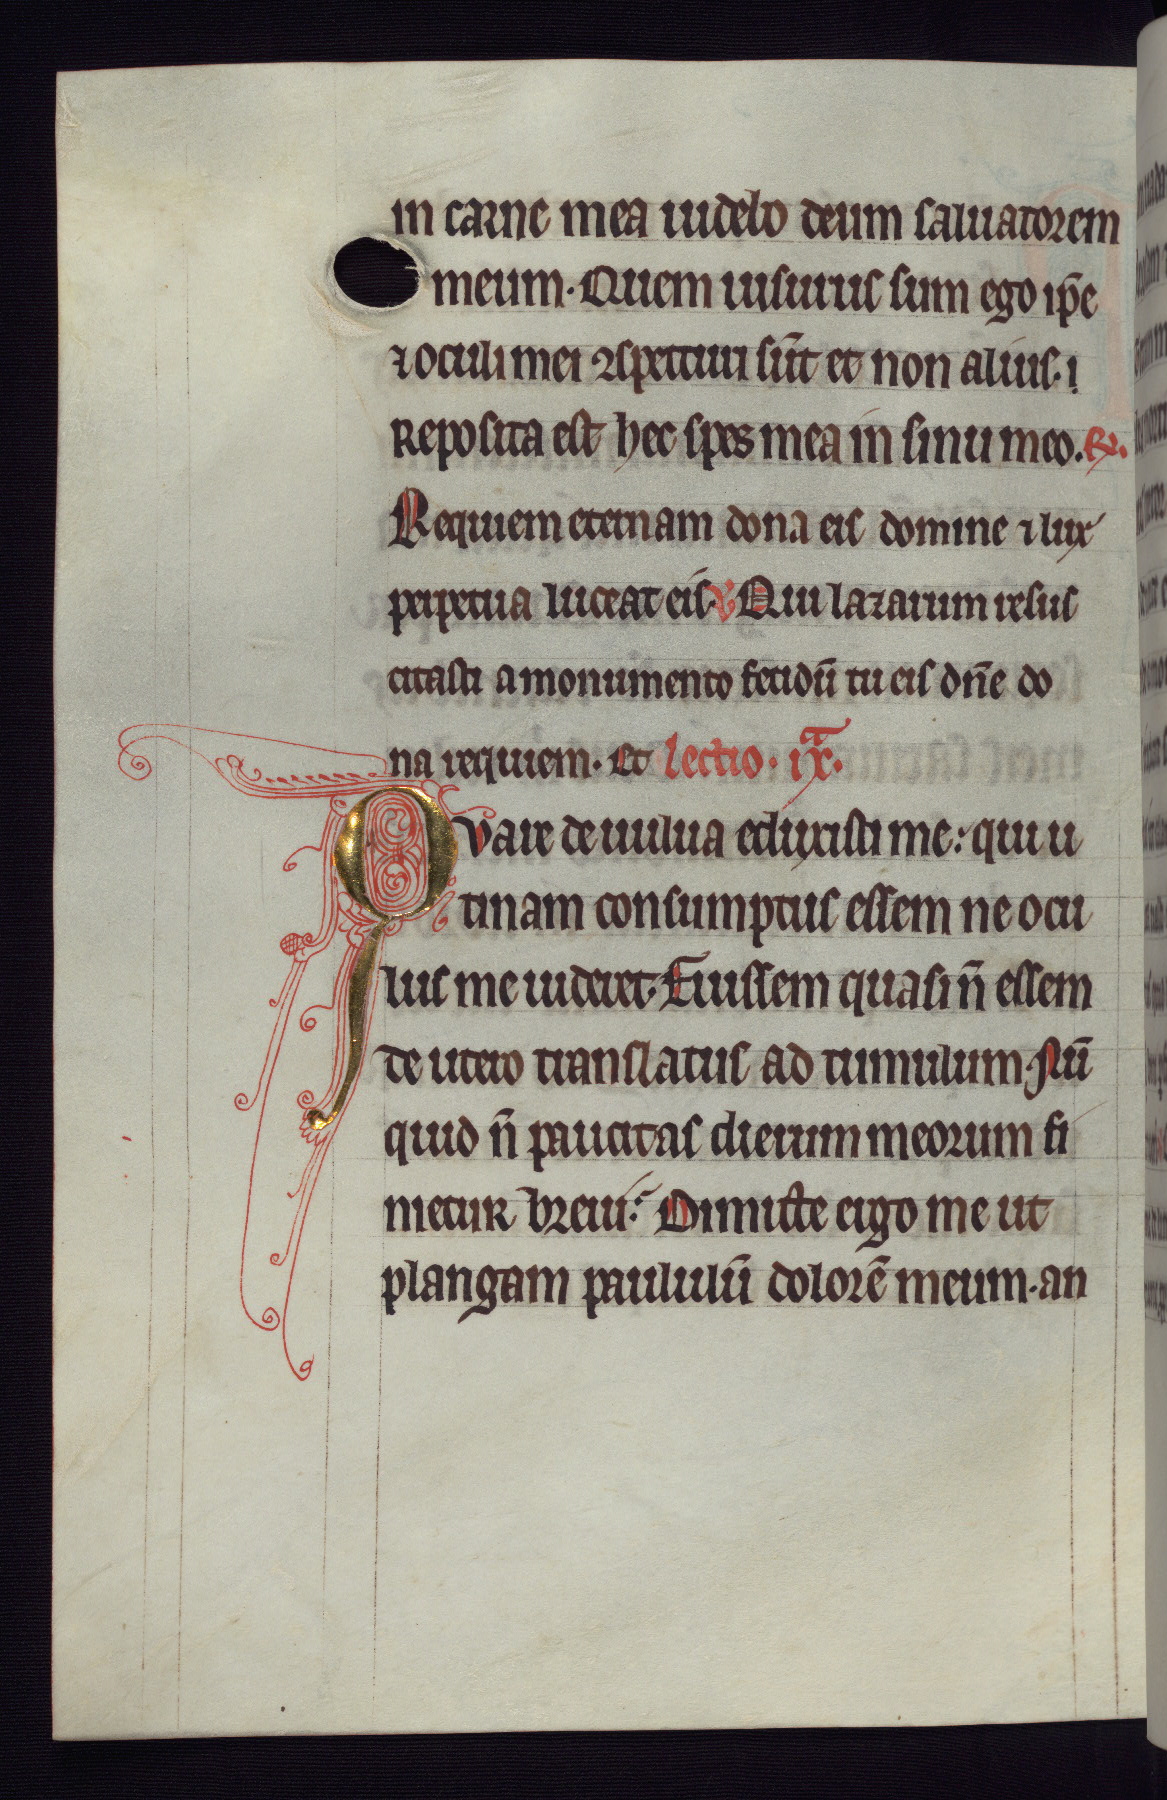 in carne mea uidebo deum saluatorem
meum. Quem uisurus sum ego ip̅e
⁊ oculi mei ꝯspecturi su̅t et non alius. i
Reposita est hec spes mea in sinu meo. ℟.
Requiem eternam dona eis domine ⁊ lux
perpetua luceat eis. V Qui lazarum resus
citasti a monumento fetidu̅ tu eis dn̅e do
na requiem. Et Lectio. ixᵃ.
Quare de uulua eduxisti me: qui u
tinam consumptus essem ne ocu
lus me uideret. Fuissem quasi n̅ essem
de utero translatus ad tumulum. Nu̅
quid n̅ paucitas dierum meorum fi
nietur breui: Dimitte ergo me ut
plangam paululu̅ dolore̅ meum. an